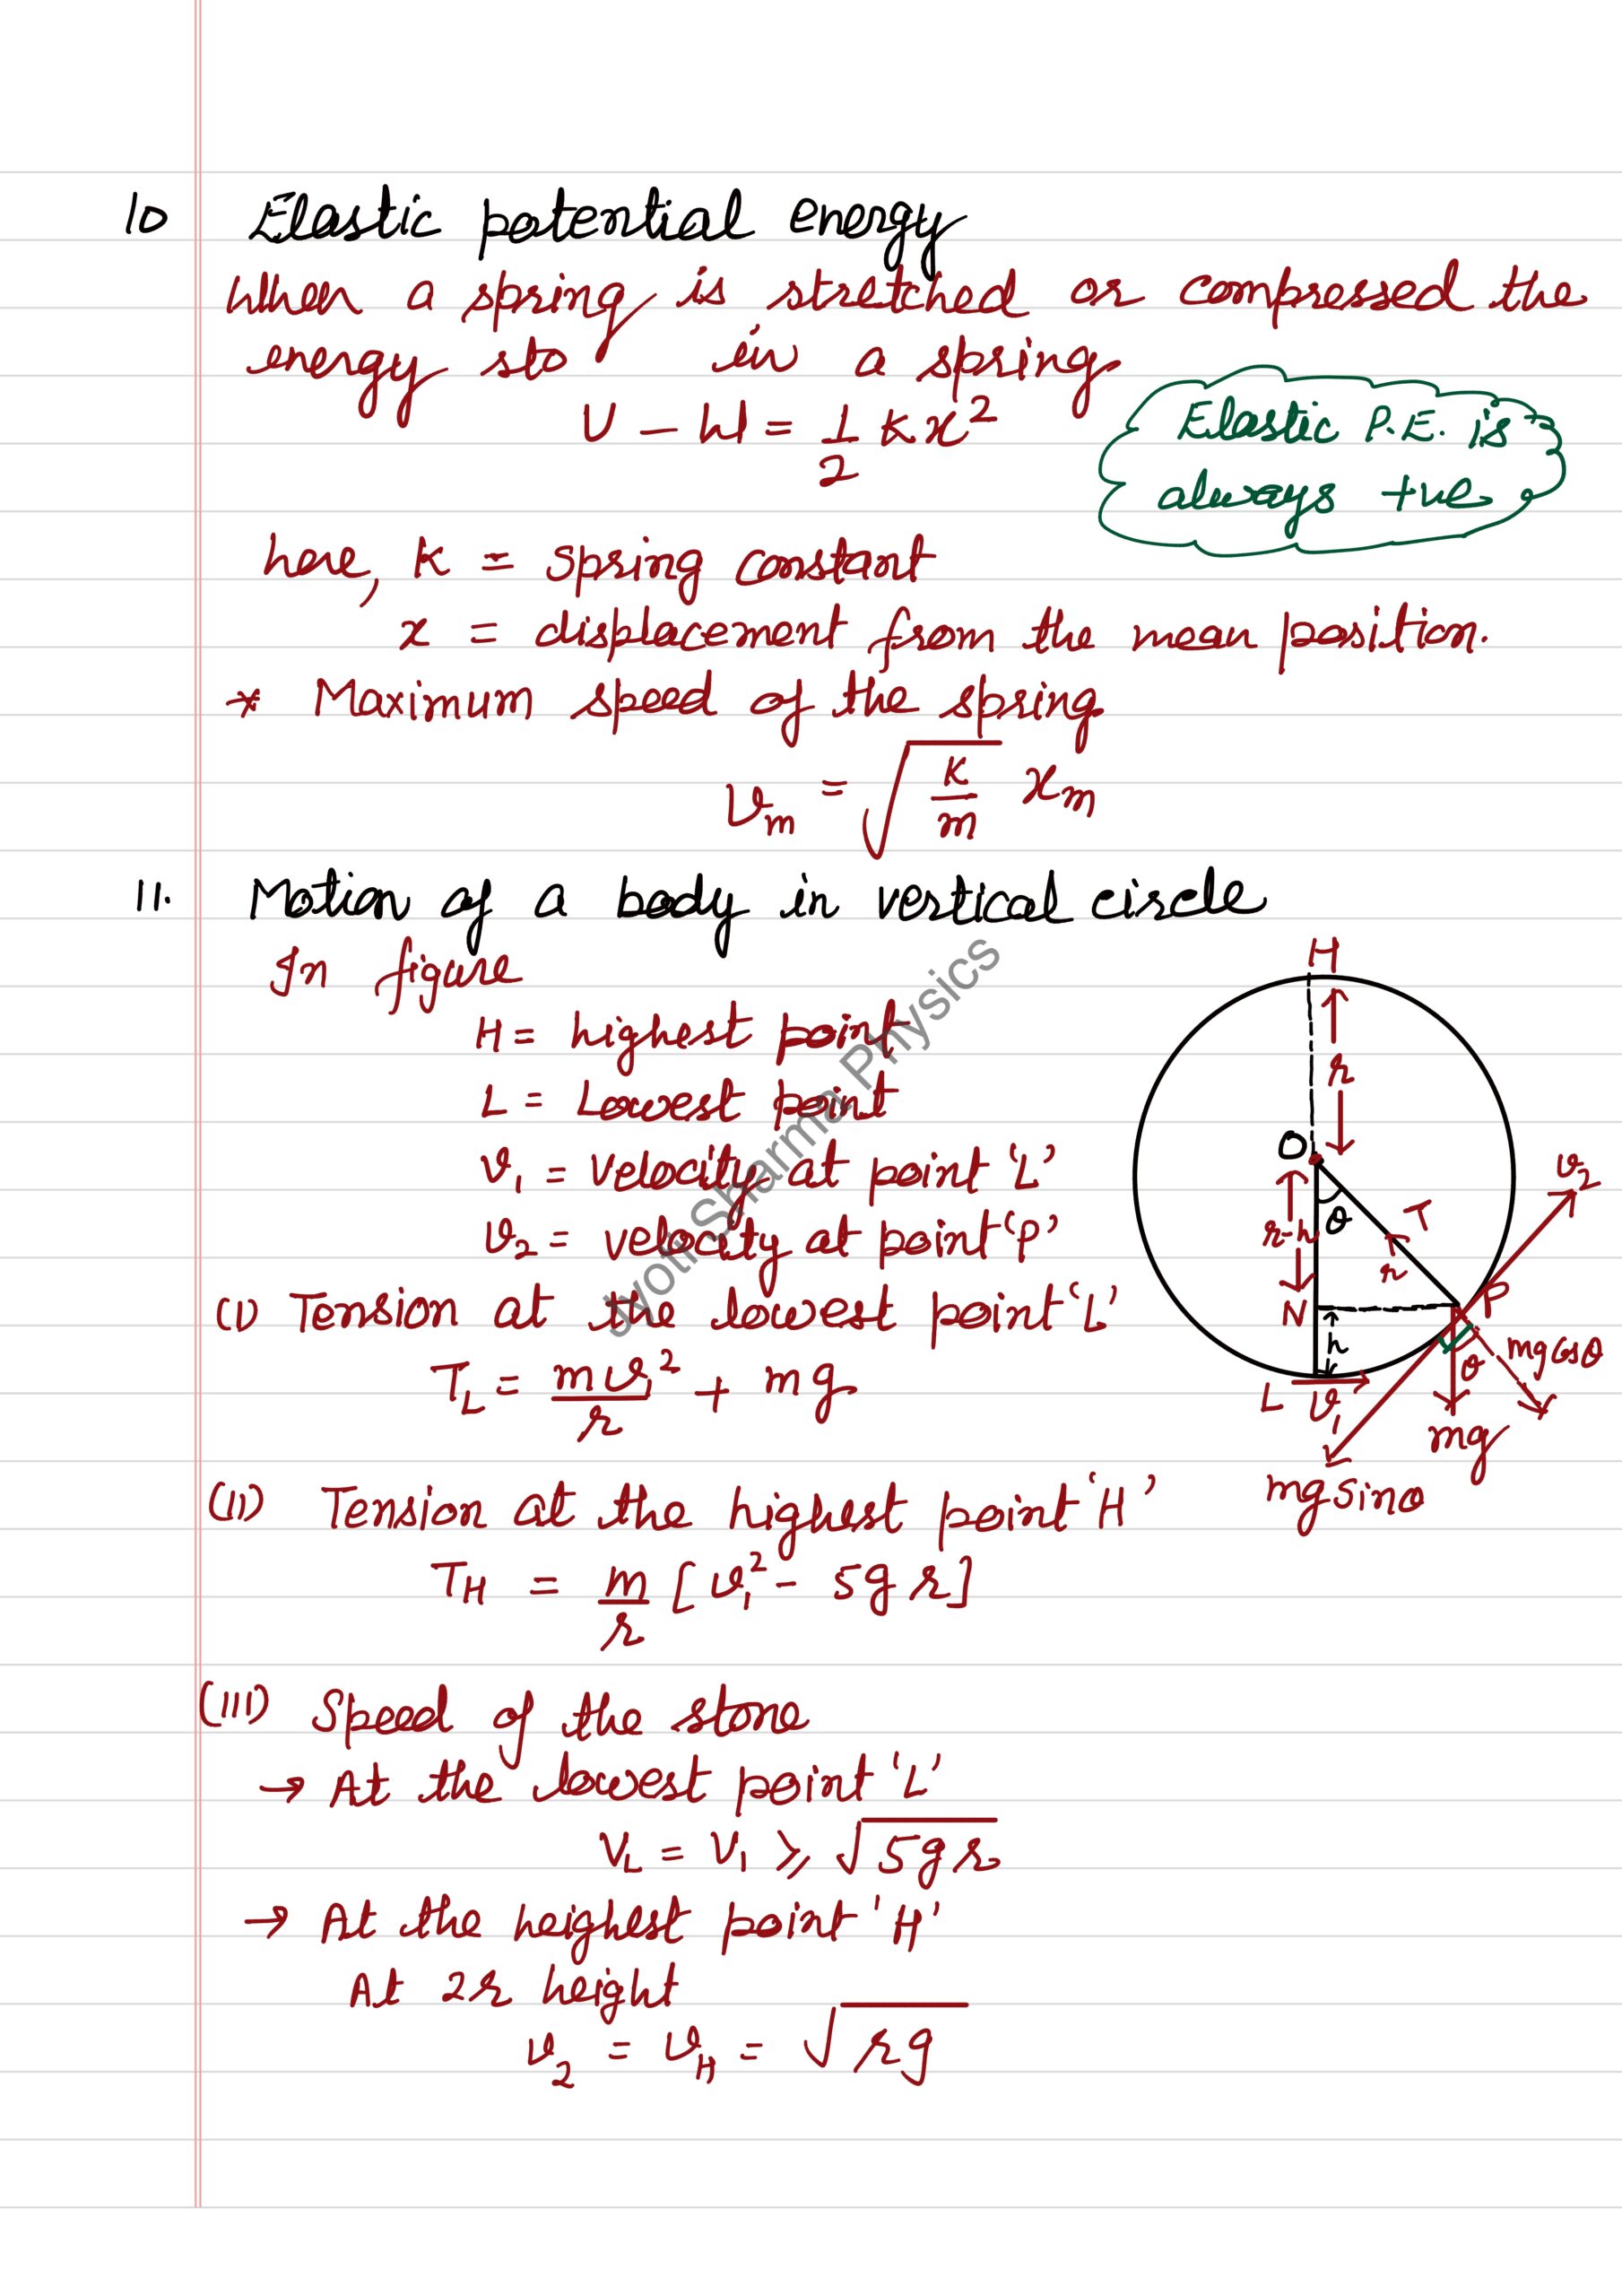 10 Elastic potential energy
When a spring is stretched or compressed the
energy sto in a spring
U - W = 1/2 K x²
Elastic P.E. is
always +ve
here, K = spring constant
x = displacement from the mean position.
* Maximum speed of the spring
v_m = √(K/m) x_m
11. Motion of a body in vertical circle
In figure
H = highest point
L = Lowest point
v₁ = velocity at point 'L'
v₂ = velocity at point 'P'
(I) Tension at the lowest point 'L'
T_L = mv₁²/r + mg
(II) Tension at the highest point 'H'
T_H = m/r [v₁² - 5gr]
(III) Speed of the stone
→ At the lowest point 'L'
V_L = V₁ ≥ √5gr
→ At the heighest point 'H'
At 2r height
v₂ = v_H = √rg
H
r
O
θ
r-h
T
r
v₂
N
P
h
θ
mg cosθ
L
v₁
mg
mg sinθ
Jyoti Sharma Physics